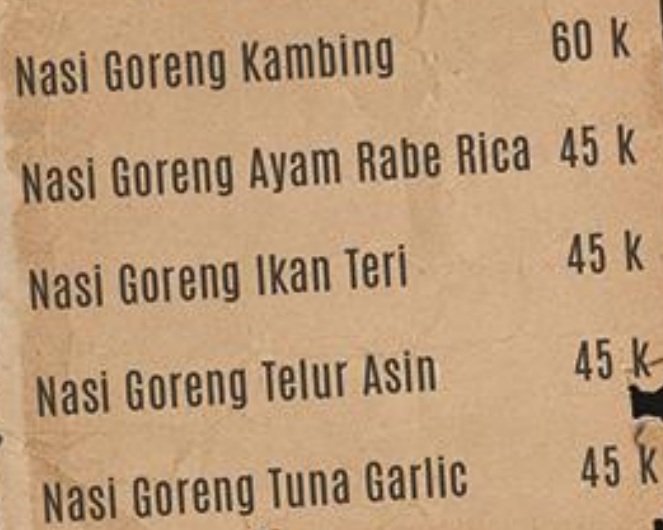 Nasi Goreng Kambing 60 k
Nasi Goreng Ayam Rabe Rica 45 k
Nasi Goreng Ikan Teri 45 k
Nasi Goreng Telur Asin 45 k
Nasi Goreng Tuna Garlic 45 k